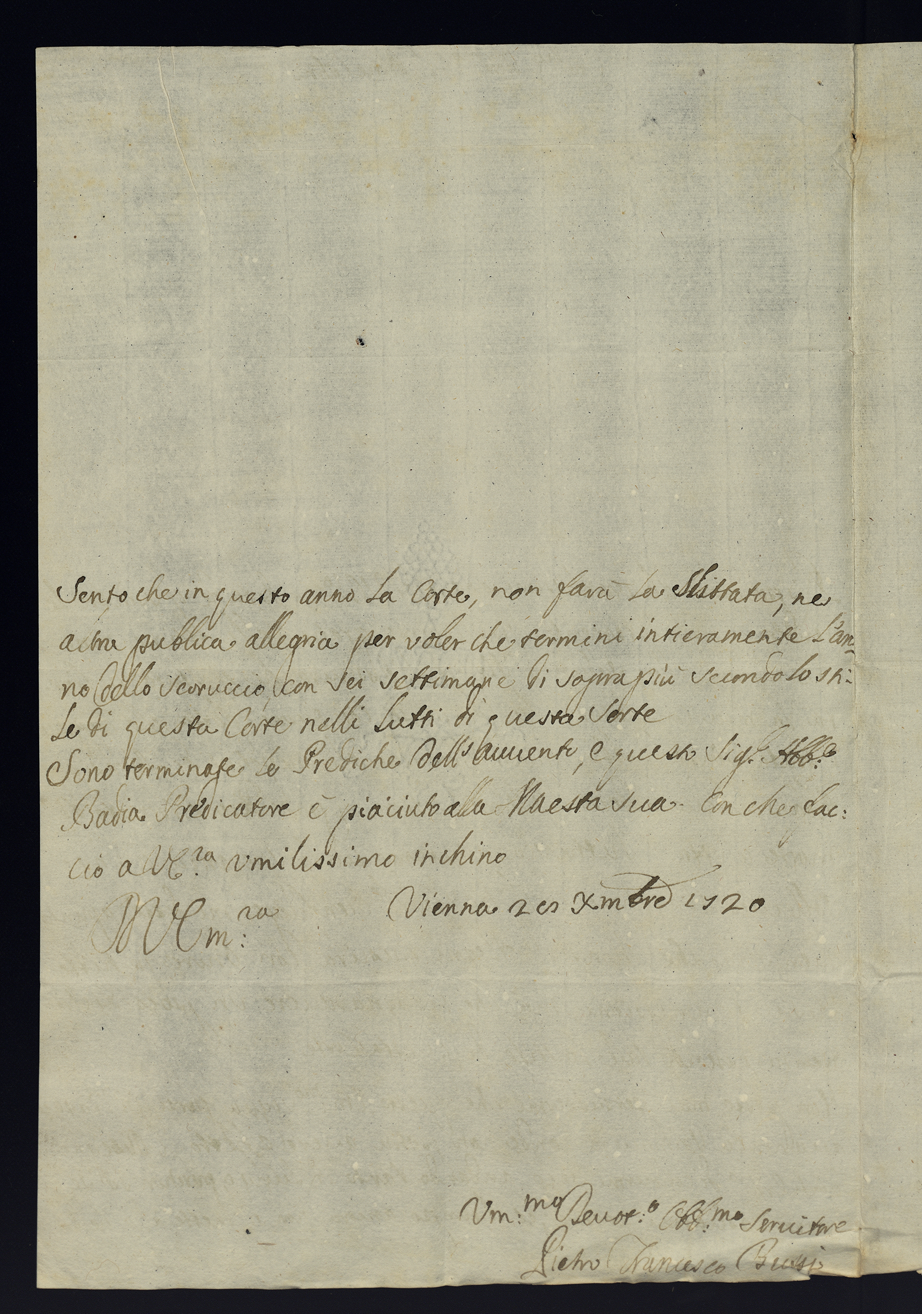 Sento che in questo anno La Corte, non farà La Slittata, ne
altra publica allegria per voler che termini intieramente L'an-
no dello scoruccio, con sei settimane di soprapiù secondo lo sti-
Le di questa Corte nelli Lutti di questa sorte
Sono terminate Le Prediche dell'auuento, e questo Sig.r Abb.e
Badia Predicatore è piaciuto alla Maesta sua. Con che facc-
cio a V.E. umilissimo inchino
Vienna Xmbre 1720
Um.mo Deuot.o Obb.mo Seruitore
Pietro Francesco